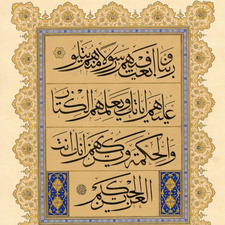 ربنا وابعث فيهم رسولا منهم يتلو
عليهم آياتك ويعلمهم الكتاب
والحكمة ويزكيهم إنك أنت
العزيز الحكيم